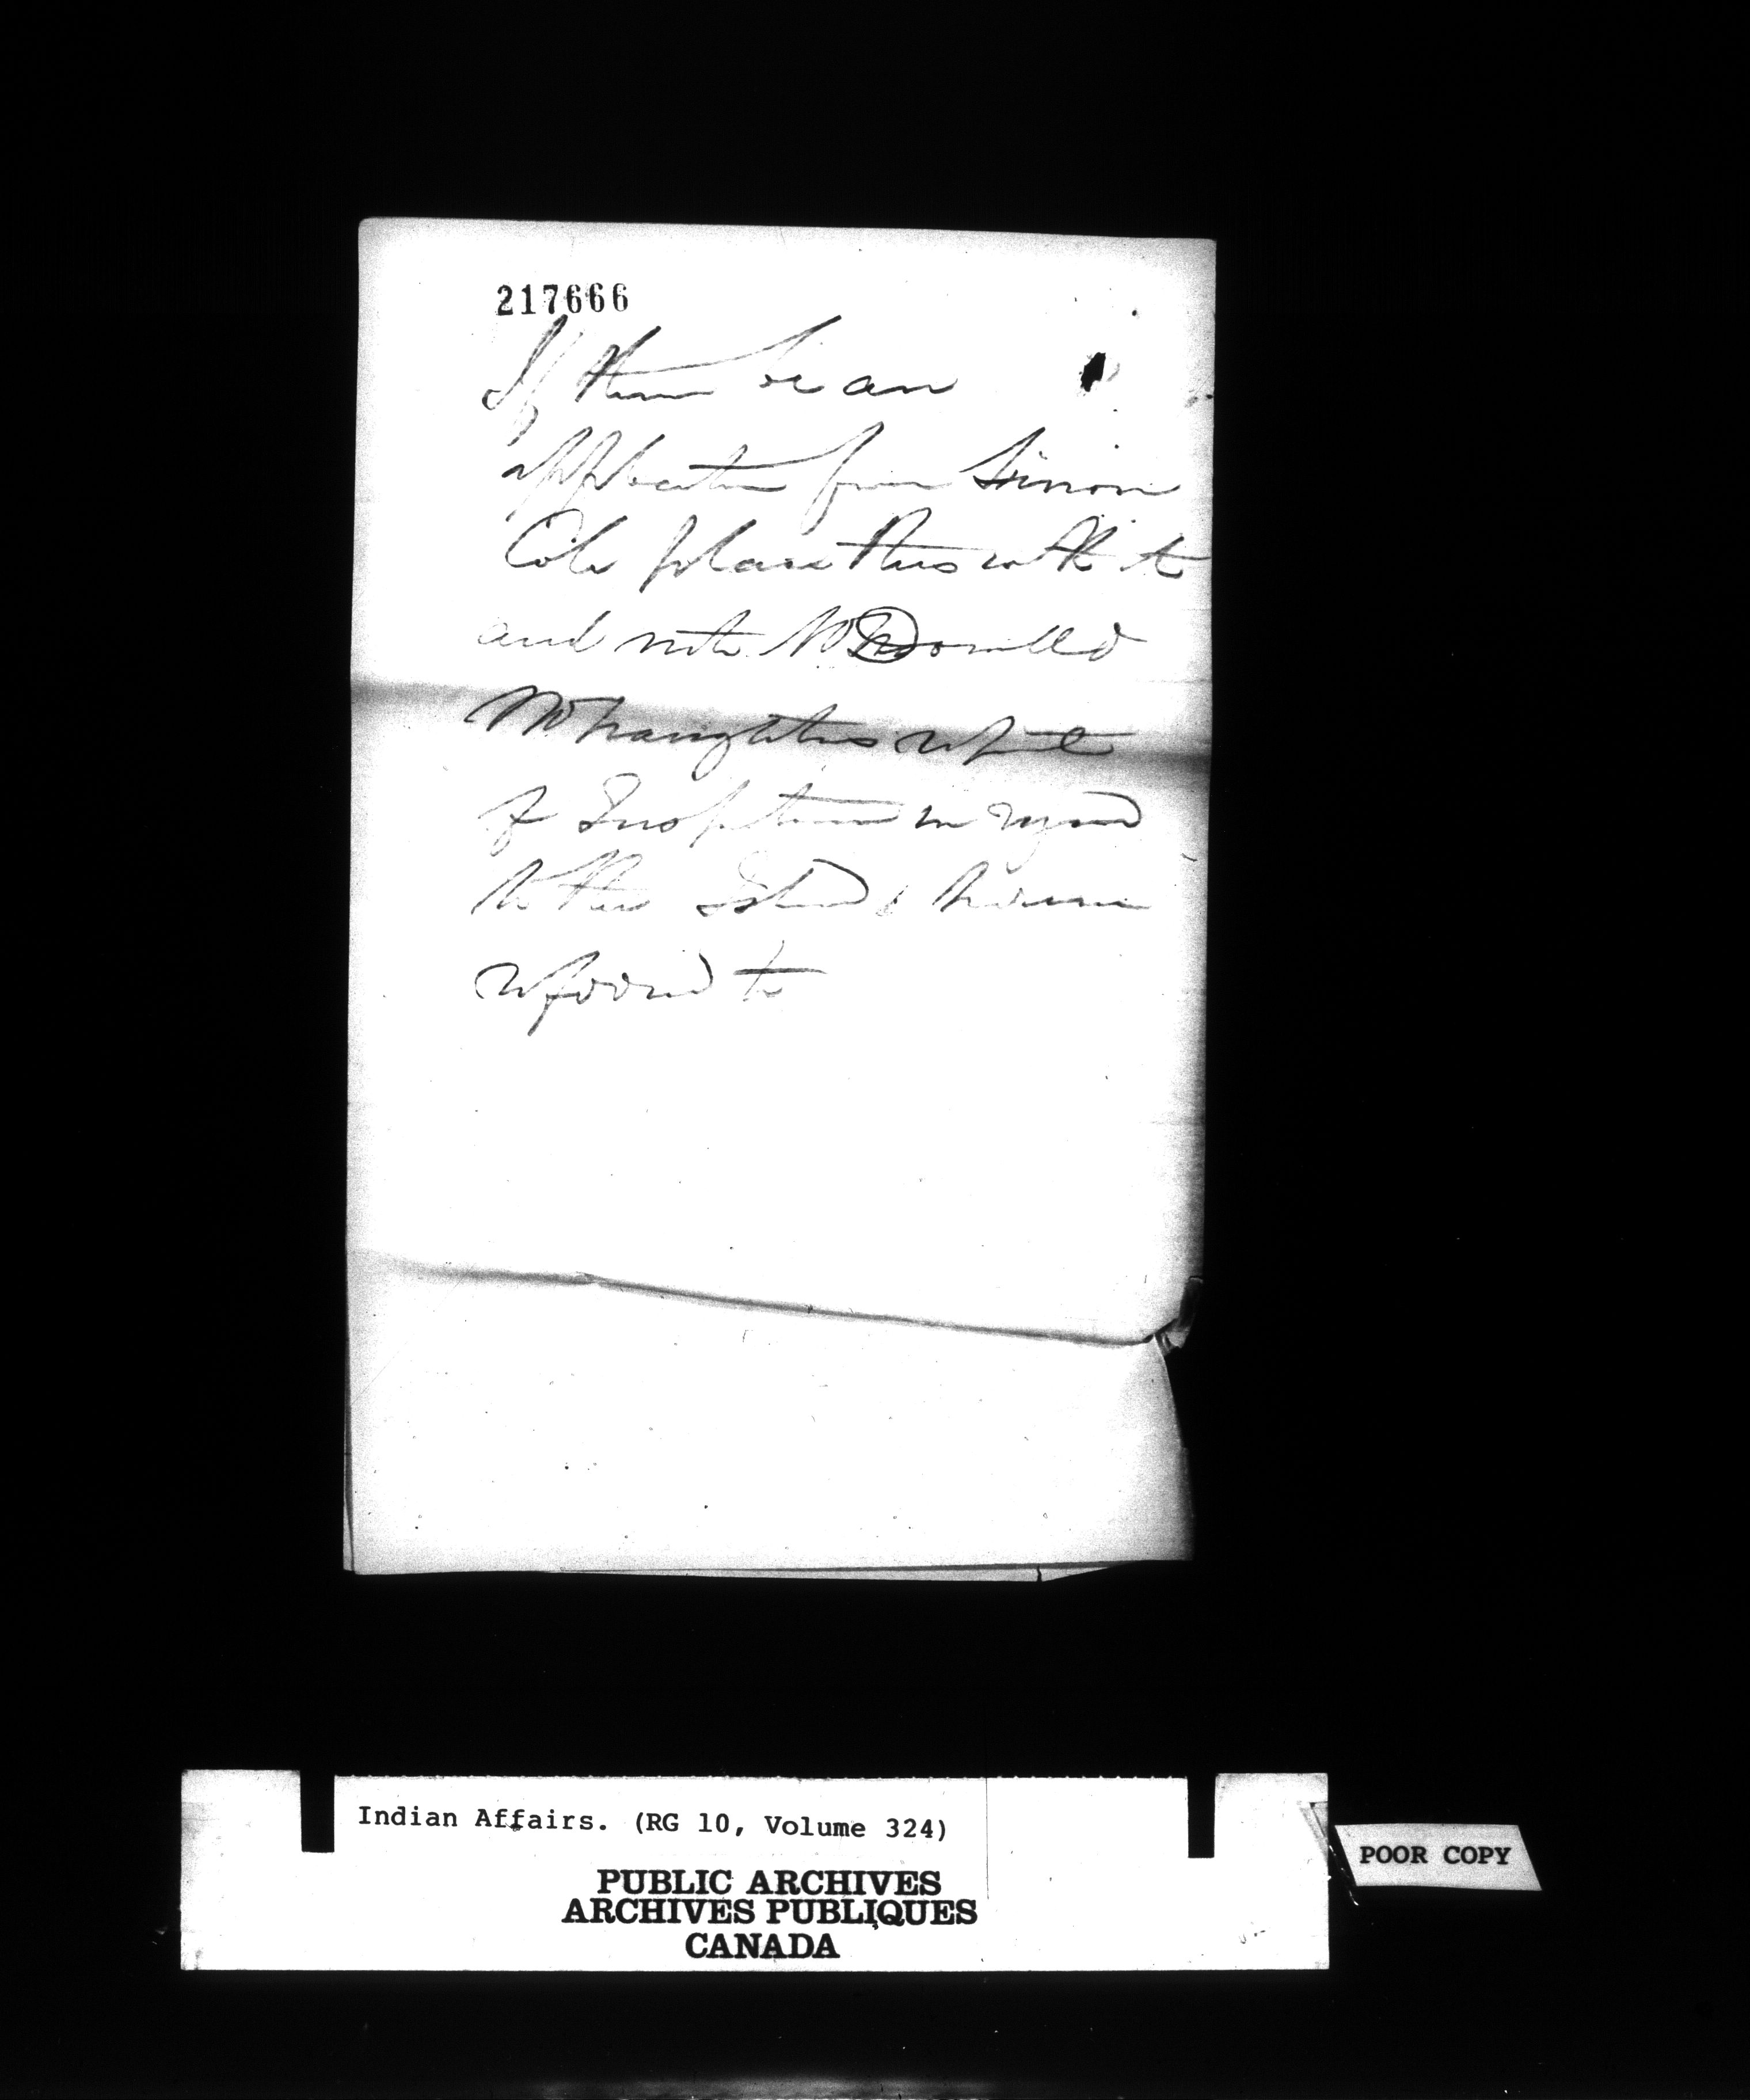 217666
If there be an
application from Simon
Cole place this with it
and note McDonald
McNaughtens report
of Inspection in regard
to the Island
referred to
Indian Affairs. (RG 10, Volume 324)
PUBLIC ARCHIVES
ARCHIVES PUBLIQUES
CANADA
POOR COPY